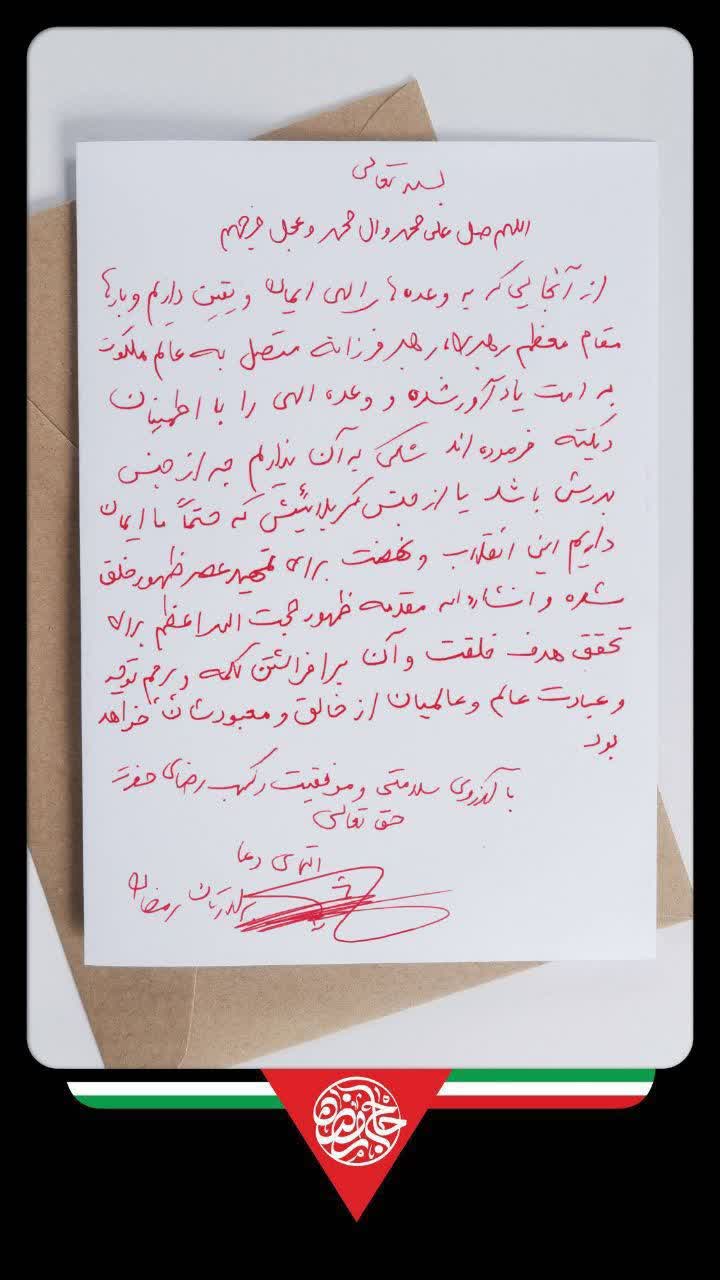 بسمه تعالی
اللهم صل علی محمد وال محمد وعجل فرجهم
از آنجایی که به وعده های الهی ایمان و یقین داریم و بارها
مقام معظم رهبری، رهبر فرزانه متصل به عالم ملکوت
به امت یادآور شده و وعده الهی را با اطمینان
دیکته فرموده اند شکی به آن نداریم چه از جنس
بدرش باشد یا از جنس کربلائیش که حتماً ما ایمان
داریم این انقلاب و نهضت برای تمهید عصر ظهور خلق
شده و انشاءالله مقدمه ظهور حجت الله اعظم برای
تحقق هدف خلقت و آن برافراشتن کلمه و پرچم توحید
و عبادت عالم و عالمیان از خالق و معبودشان خواهد
بود
با آرزوی سلامتی و موفقیت در کسب رضای حضرت
حق تعالی
التماس دعا
برادرتان رمضان
حاج رمضان